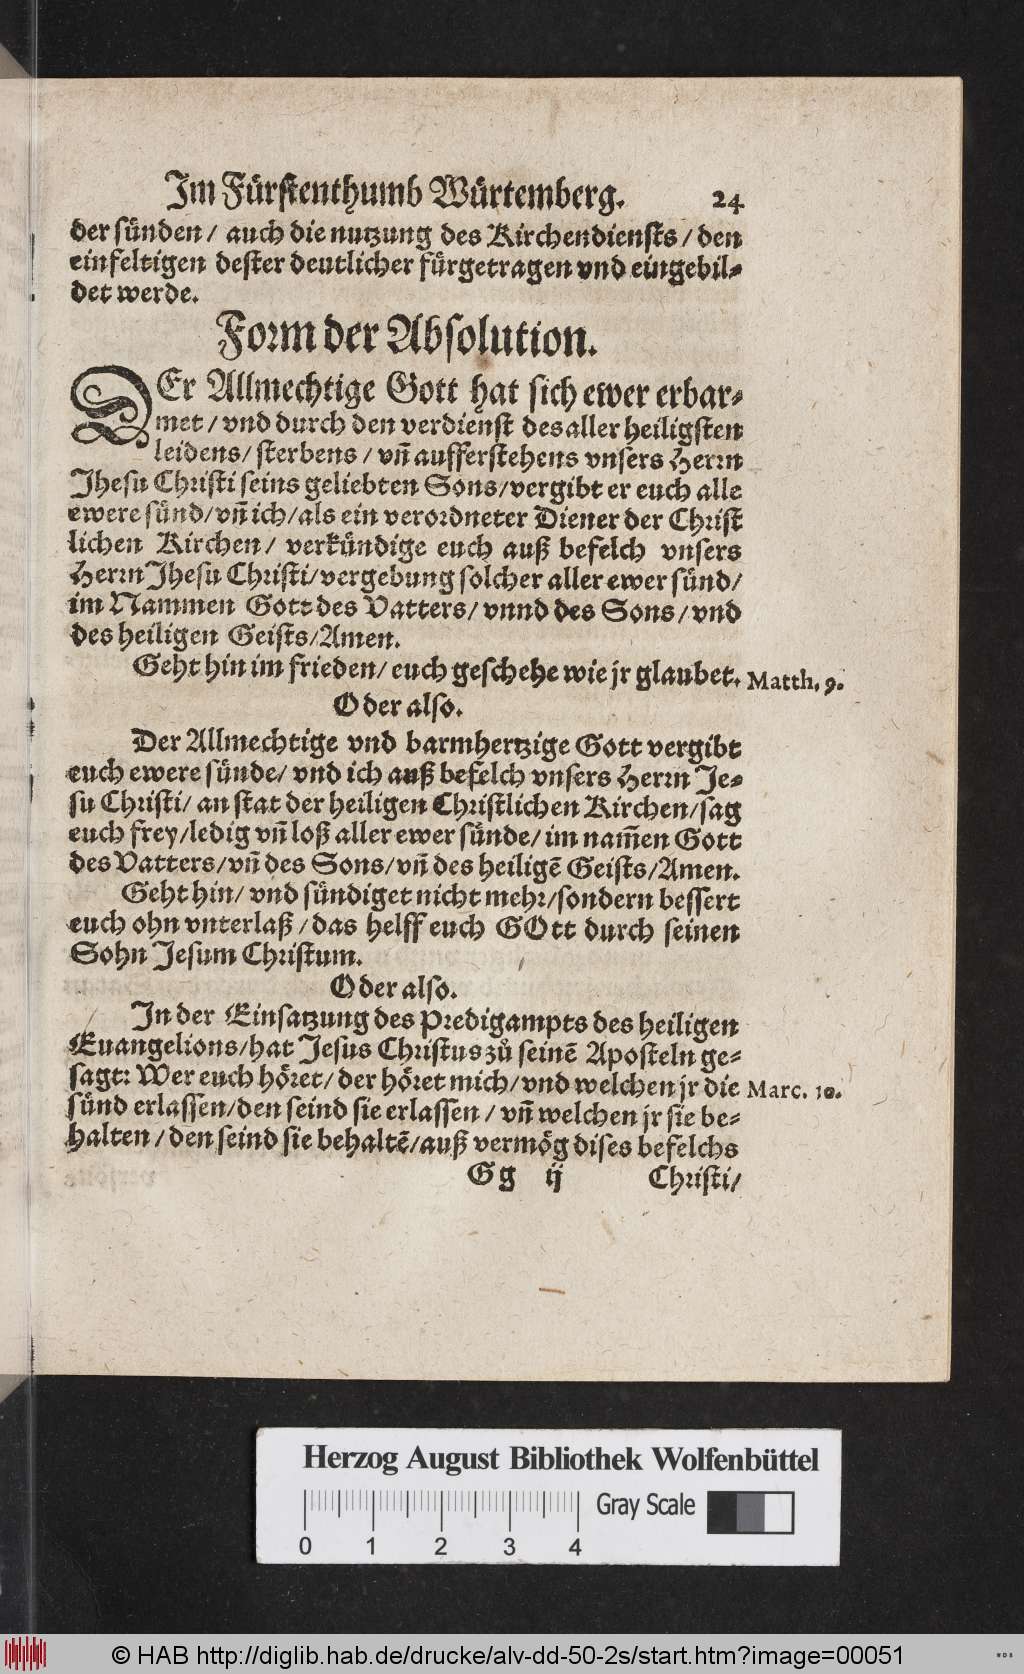 Im Fürstenthumb Würtemberg. 24
der sünden / auch die nutzung des Kirchendiensts / den
einfeltigen dester deutlicher fürgetragen vnd eingebil⸗
det werde.
Form der Absolution.
DEr Allmechtige Gott hat sich ewer erbar⸗
met / vnd durch den verdienst des aller heiligsten
leidens / sterbens / vn̄ aufferstehens vnsers Herrn
Jhesu Christi seins geliebten Sons / vergibt er euch alle
ewere sünd / vn̄ ich / als ein verordneter Diener der Christ
lichen Kirchen / verkündige euch auß befelch vnsers
Herrn Jhesu Christi / vergebung solcher aller ewer sünd /
im Nammen Gott des Vatters / vnnd des Sons / vnd
des heiligen Geists / Amen.
Geht hin im frieden / euch geschehe wie jr glaubet. Matth. 9.
Oder also.
Der Allmechtige vnd barmhertzige Gott vergibt
euch ewere sünde / vnd ich auß befelch vnsers Herrn Je⸗
su Christi / an stat der heiligen Christlichen Kirchen / sag
euch frey / ledig vn̄ loß aller ewer sünde / im nam̄en Gott
des Vatters / vn̄ des Sons / vn̄ des heiligē Geists / Amen.
Geht hin / vnd sündiget nicht mehr / sondern bessert
euch ohn vnterlaß / das helff euch GOtt durch seinen
Sohn Jesum Christum.
Oder also.
In der Einsatzung des Predigampts des heiligen
Euangelions / hat Jesus Christus zů seinē Aposteln ge⸗
sagt: Wer euch höret / der höret mich / vnd welchen jr die Marc. 10.
sünd erlassen / den seind sie erlassen / vn̄ welchen jr sie be⸗
halten / den seind sie behaltē / auß vermög dises befelchs
Gg ij Christi /
Herzog August Bibliothek Wolfenbüttel
Gray Scale
0 1 2 3 4
© HAB http://diglib.hab.de/drucke/alv-dd-50-2s/start.htm?image=00051